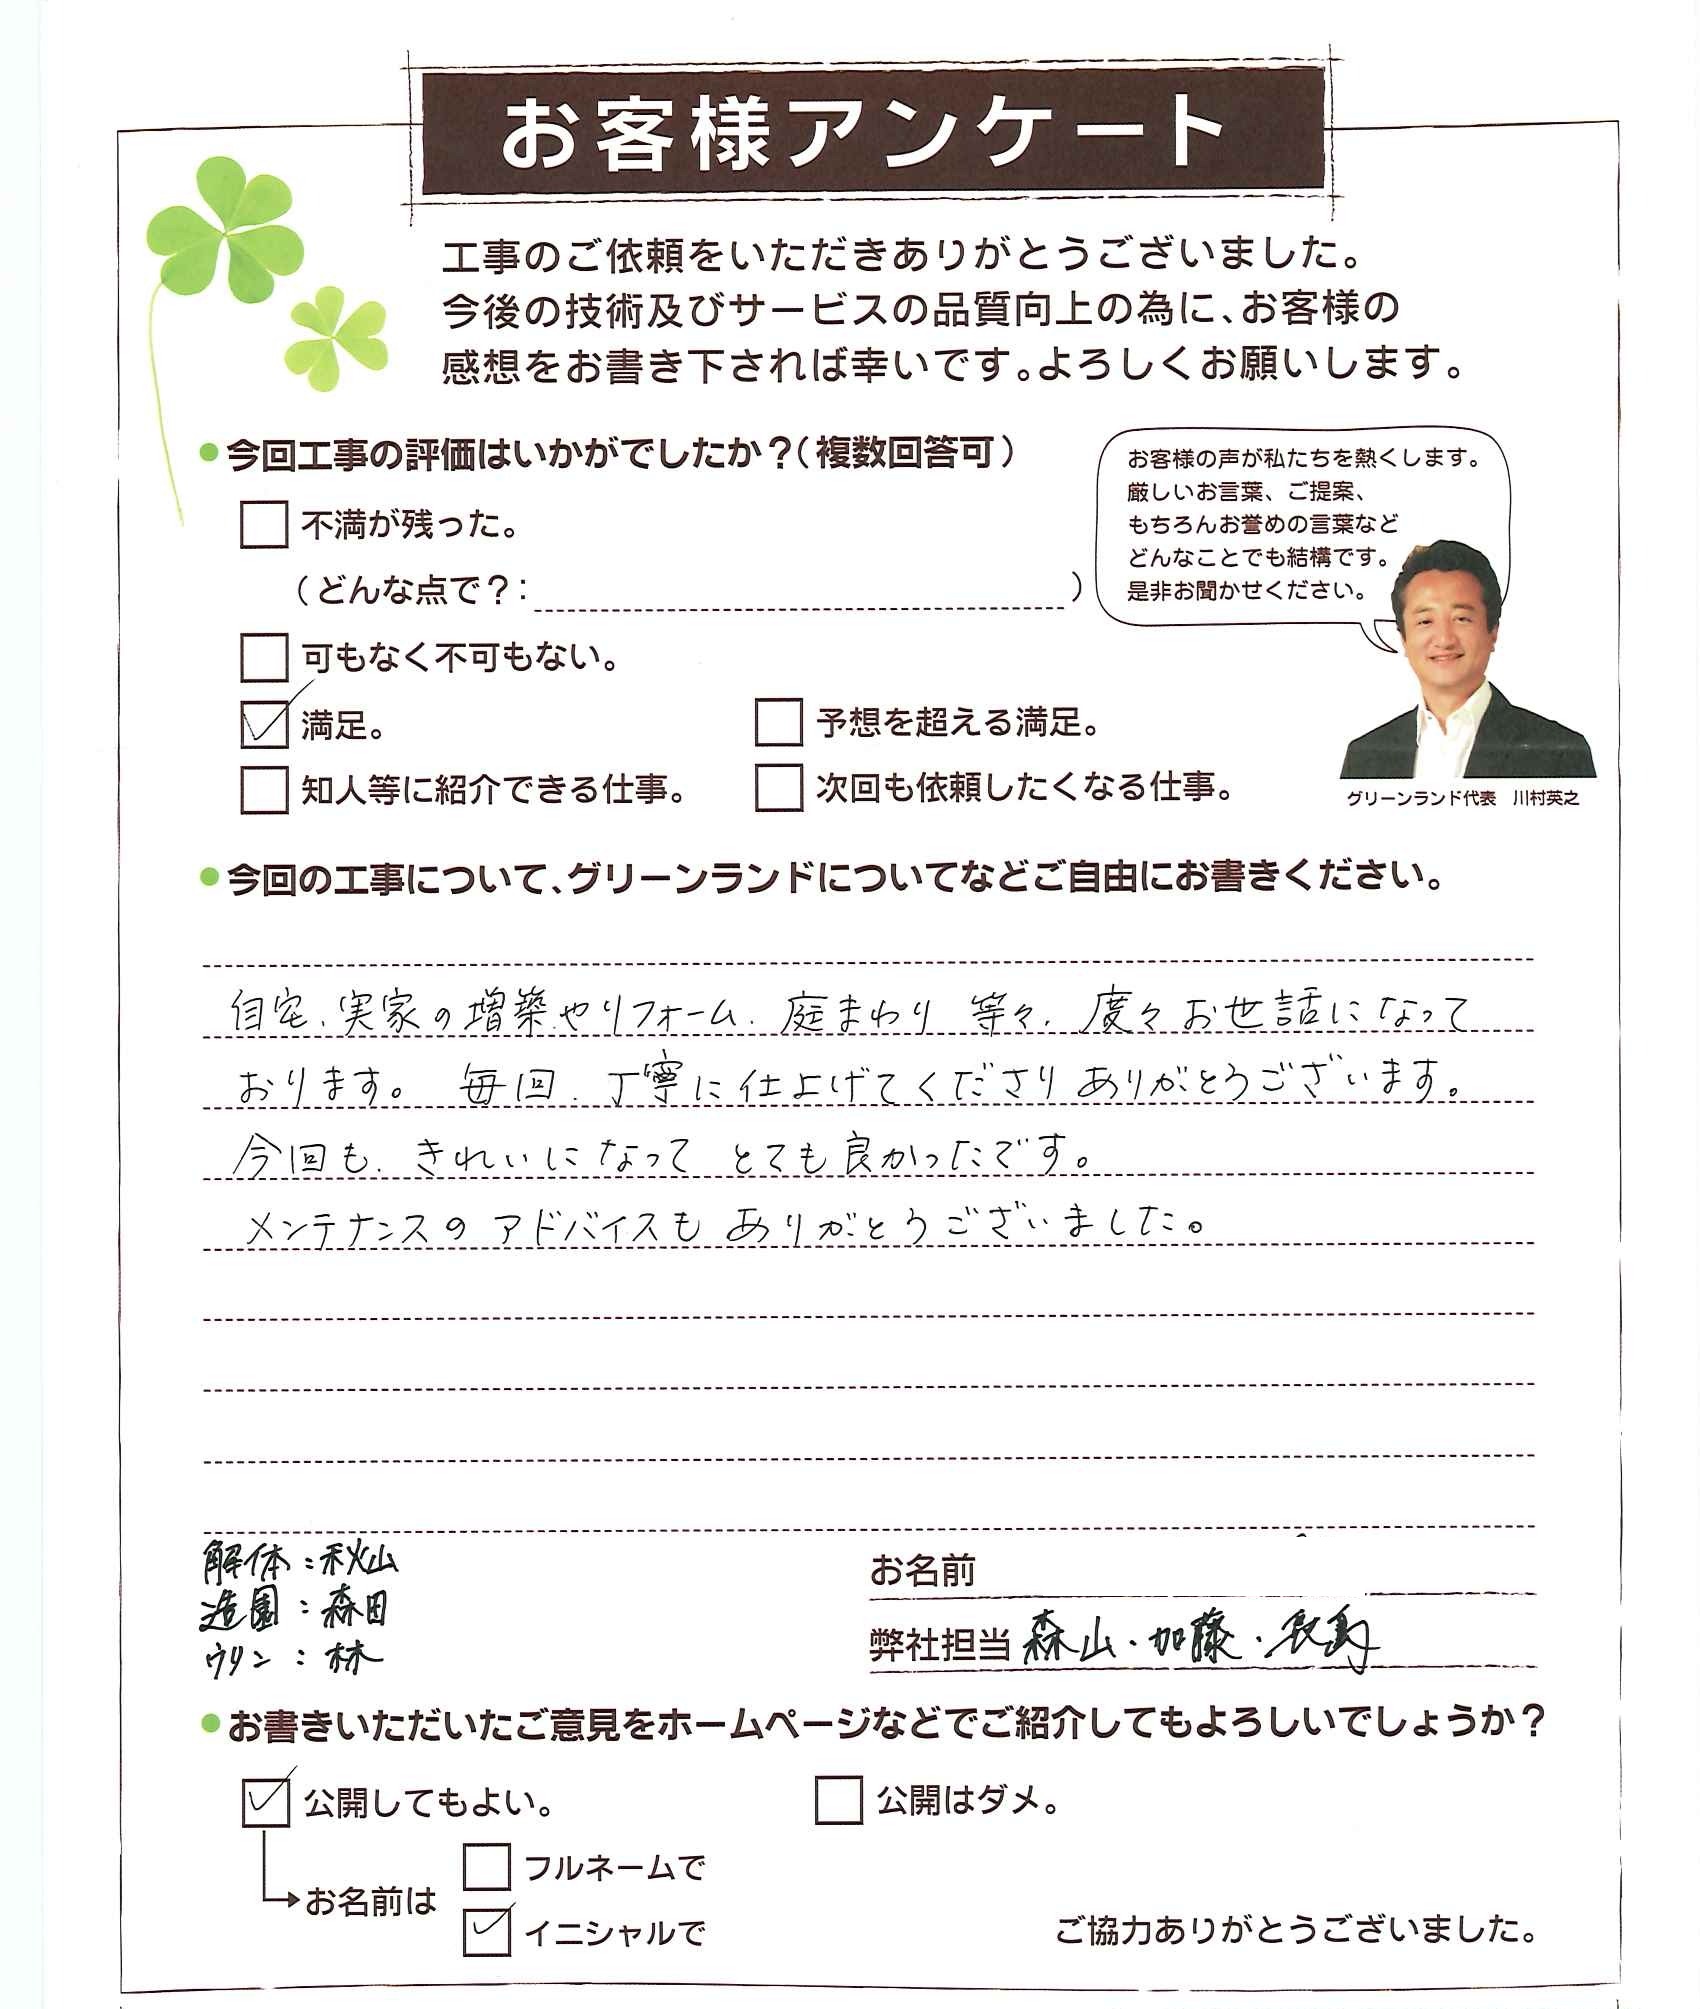 お客様アンケート
工事のご依頼をいただきありがとうございました。
今後の技術及びサービスの品質向上の為に、お客様の
感想をお書き下されば幸いです。よろしくお願いします。
●今回工事の評価はいかがでしたか？（複数回答可）
お客様の声が私たちを熱くします。
厳しいお言葉、ご提案、
もちろんお誉めの言葉など
どんなことでも結構です。
是非お聞かせください。
不満が残った。
（どんな点で？： ）
可もなく不可もない。
満足。
予想を超える満足。
知人等に紹介できる仕事。
次回も依頼したくなる仕事。
グリーンランド代表 川村英之
●今回の工事について、グリーンランドについてなどご自由にお書きください。
自宅、実家の増築やリフォーム、庭まわり 等々、度々お世話になって
おります。 毎回、丁寧に仕上げてくださりありがとうございます。
今回も、きれいになって とても良かったです。
メンテナンスの アドバイスも ありがとうございました。
解体：秋山
造園：森田
ウリン：林
お名前
弊社担当 森山・加藤・長島
●お書きいただいたご意見をホームページなどでご紹介してもよろしいでしょうか？
公開してもよい。
公開はダメ。
お名前は
フルネームで
イニシャルで
ご協力ありがとうございました。